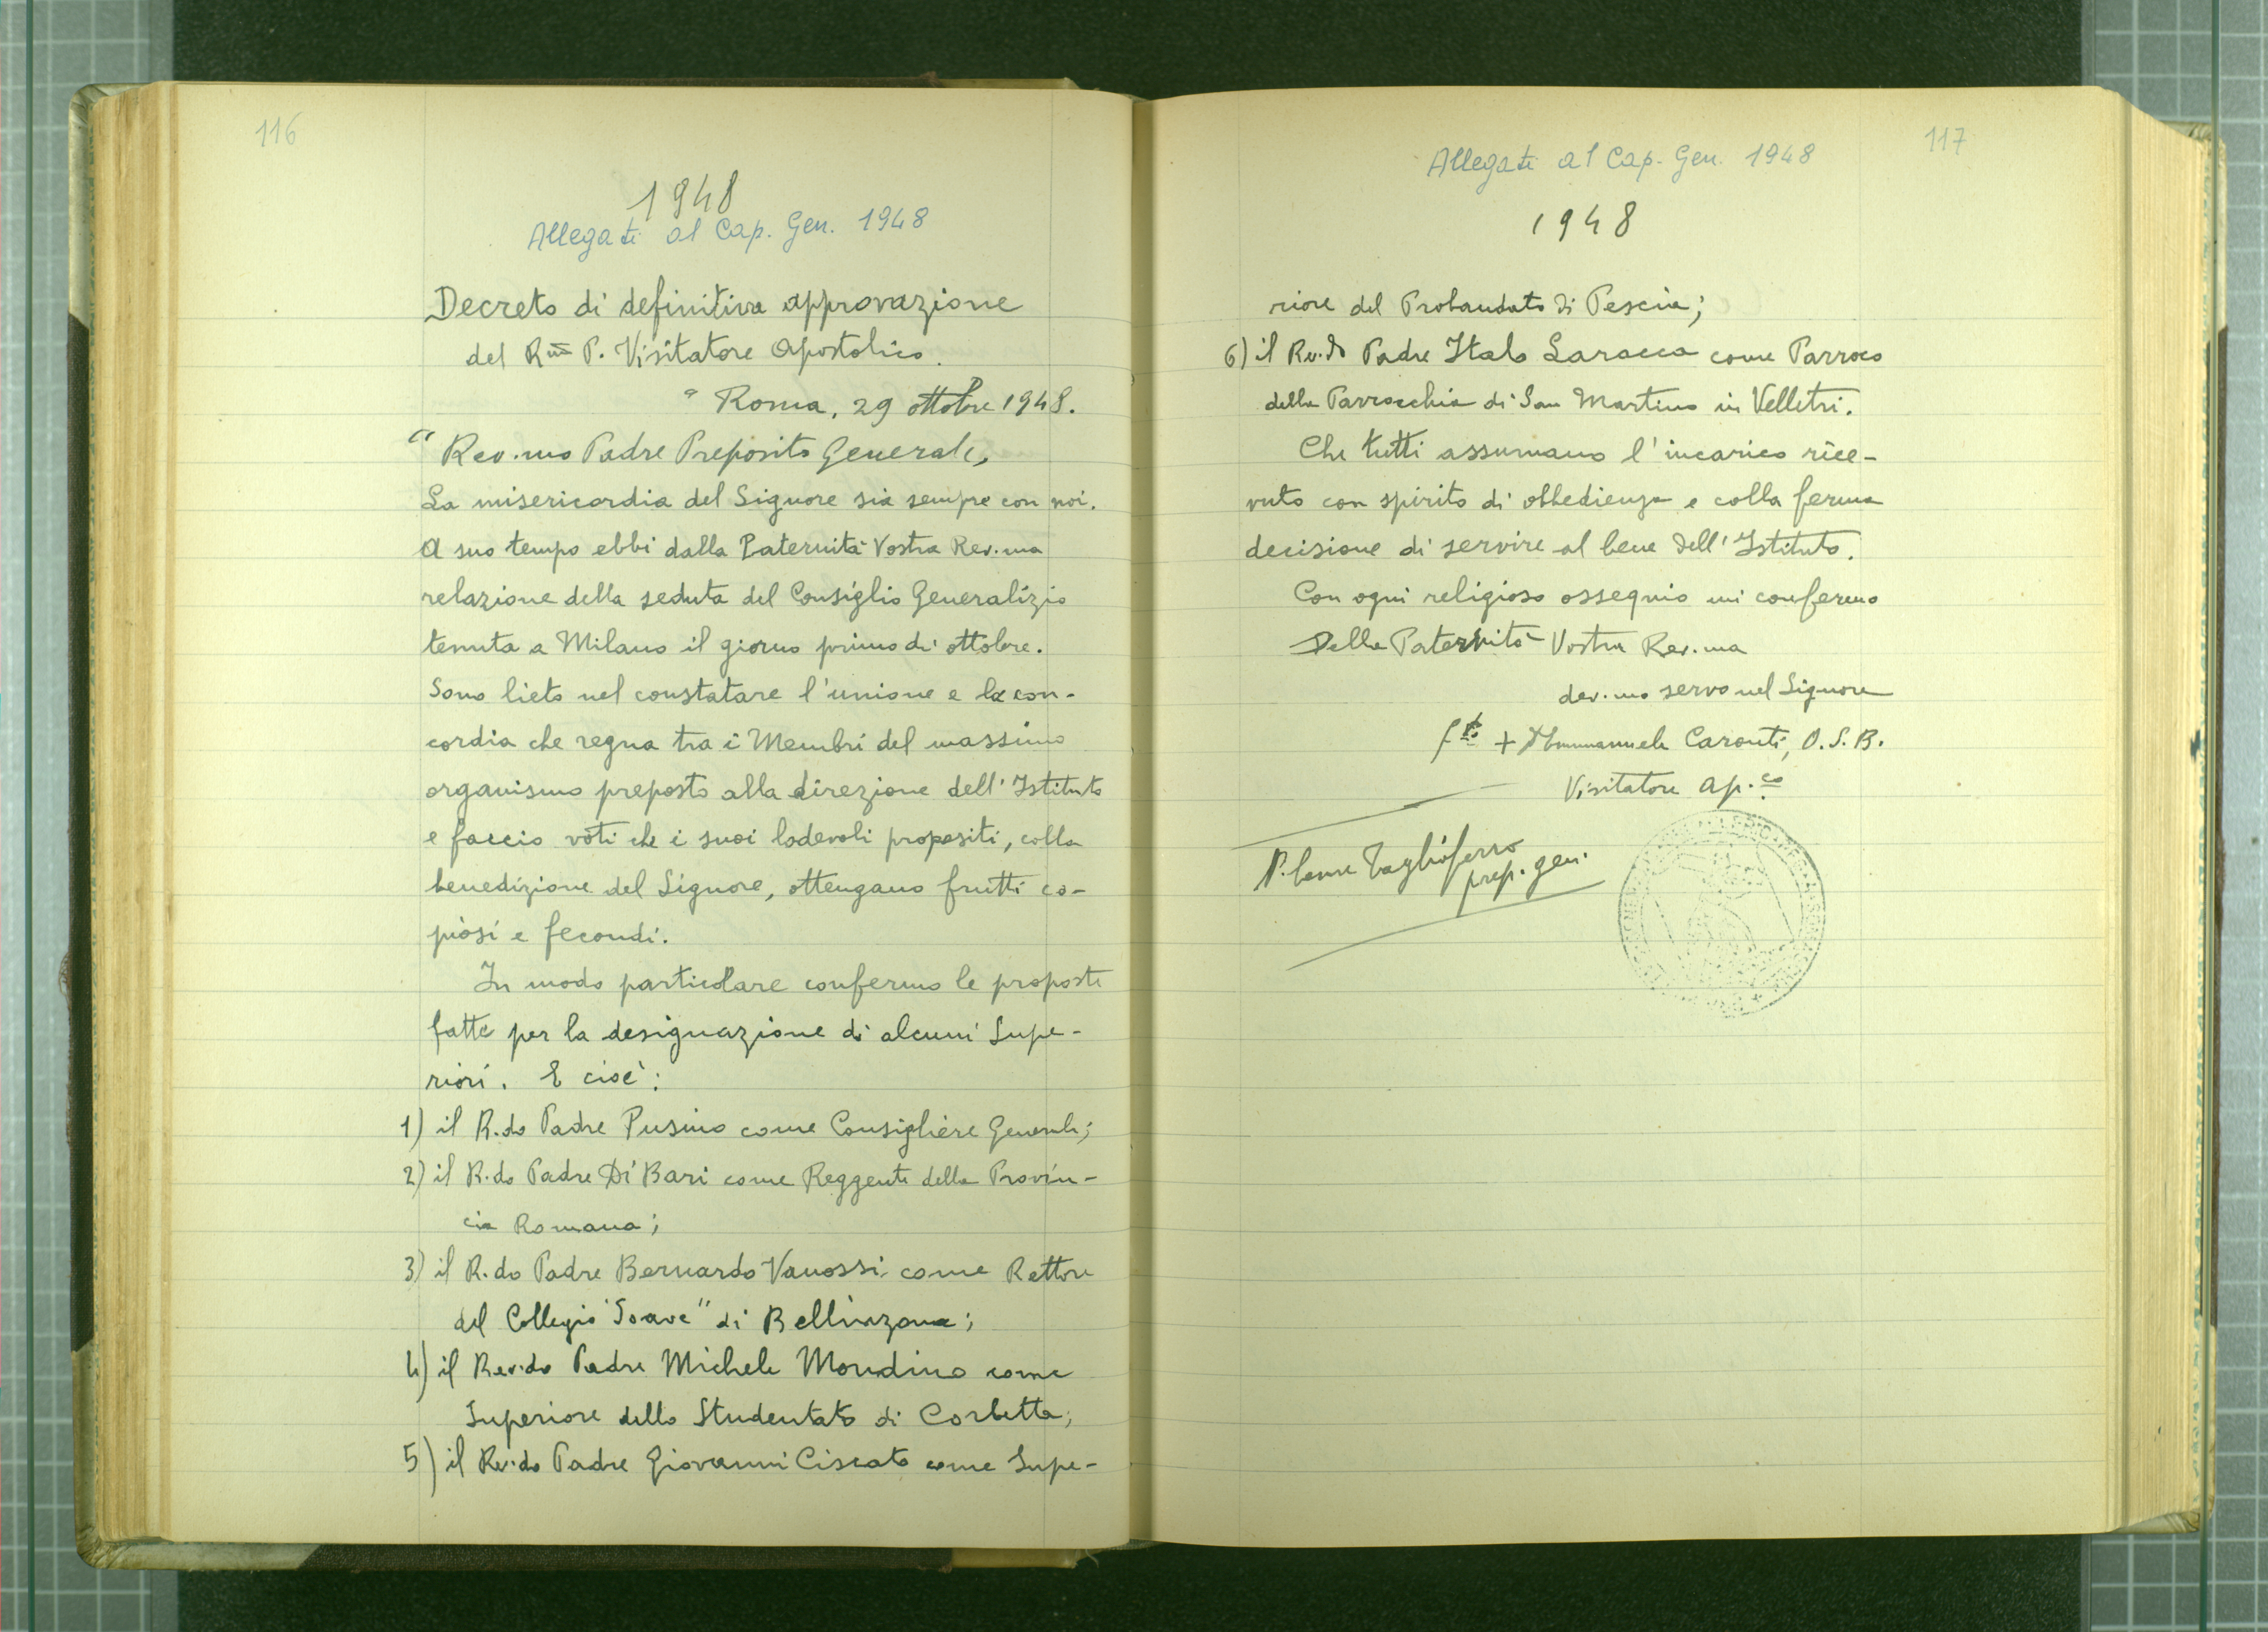 116
1948
Allegati al Cap. Gen. 1948
Decreto di definitiva approvazione
del R.mo P. Visitatore Apostolico.
" Roma, 29 ottobre 1948.
" Rev.mo Padre Preposito Generale,
La misericordia del Signore sia sempre con noi.
A suo tempo ebbi dalla Paternità Vostra Rev.ma
relazione della seduta del Consiglio Generalizio
tenuta a Milano il giorno primo di ottobre.
Sono lieto nel constatare l'unione e la con-
cordia che regna tra i Membri del massimo
organismo preposto alla direzione dell'Istituto
e faccio voti che i suoi lodevoli propositi, colla
benedizione del Signore, ottengano frutti co-
piosi e fecondi.
In modo particolare confermo le proposte
fatte per la designazione di alcuni Supe-
riori. E cioè:
1) il R.do Padre Pusino come Consigliere Generale;
2) il R.do Padre Di Bari come Reggente della Provin-
cia Romana;
3) il R.do Padre Bernardo Vanossi come Rettore
del Collegio "Soave" di Bellinzona;
4) il Rev.do Padre Michele Mondino come
Superiore dello Studentato di Corbetta;
5) il Rev.do Padre Giovanni Ciscato come Supe-
117
Allegati al Cap. Gen. 1948
1948
riore del Probandato di Pescia;
6) il Rev.do Padre Italo Laracca come Parroco
della Parrocchia di San Martino in Velletri.
Che tutti assumano l'incarico rice-
vuto con spirito di obbedienza e colla ferma
decisione di servire al bene dell'Istituto.
Con ogni religioso ossequio mi confermo
Della Paternità Vostra Rev.ma
dev.mo servo nel Signore
f.to + Emmanuele Caronti, O.S.B.
Visitatore Ap.co
P. Cesare Tagliaferro
prep. gen.